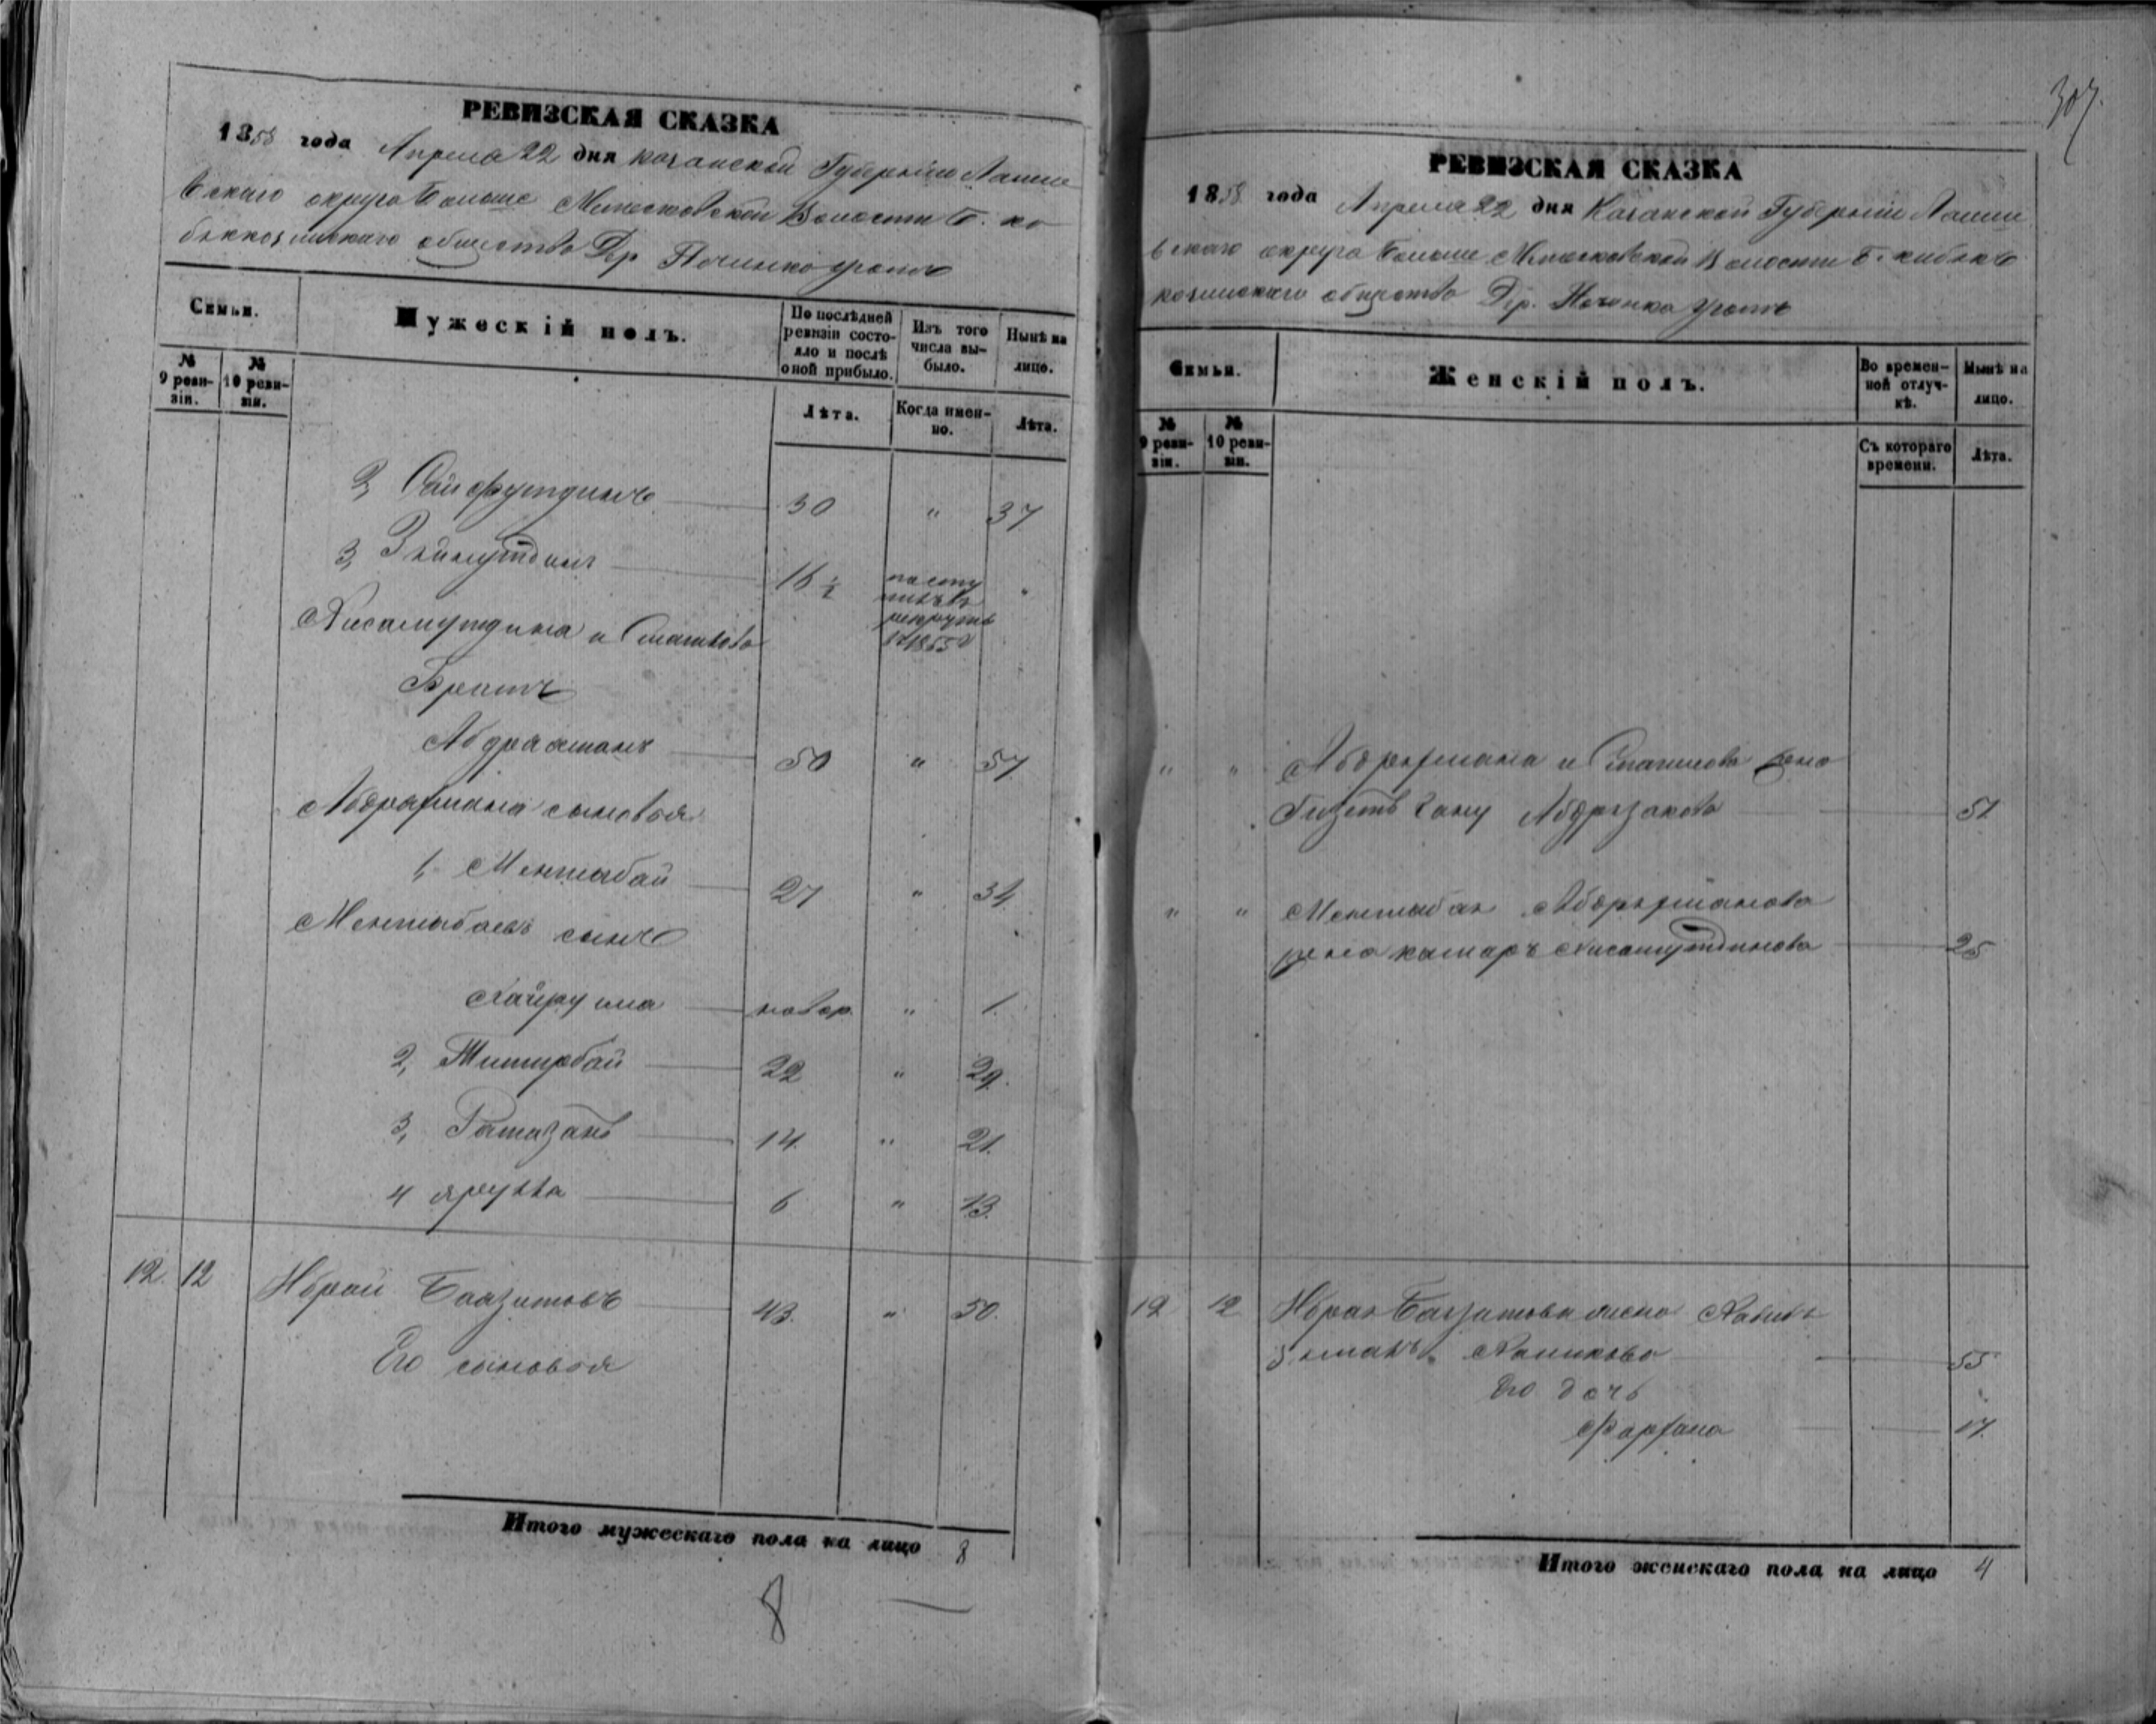 РЕВИЗСКАЯ СКАЗКА
1858 года Апреля 22 дня Казанской Губернии Лаише
вскаго округа Больше Метесковской Волости Б. ки
бяккозинскаго общества Дер Починка
Семьи.
Мужескій полъ.
По послѣдней ревизіи состояло и послѣ оной прибыло.
Изъ того числа выбыло.
Нынѣ на лицо.
№ 9 ревизіи.
№ 10 ревизіи.
Лѣта.
Когда именно.
Лѣта.
2, Сайфутдинъ 30 " 37
3, Зяйнутдинъ 16 ½ поступилъ въ рекруты въ 1855 г "
Хисамутдина и Смагилова
Братъ
Абдрахманъ 50 " 57
Абдрахмана сыновья
1, Менлибай 27 " 34
Менлибаевъ сынъ
Хайрулла новор. " 1.
2, Тимирбай 22 " 29.
3, Рамазанъ 14. " 21.
4 6 " 13.
12. 12 Ибрай Баязитовъ 43. " 50.
Его сыновья
Итого мужескаго пола на лицо 8
8
307.
РЕВИЗСКАЯ СКАЗКА
1858 года Апреля 22 дня Казанской Губерніи Лаише
вскаго округа Больше Метесковской Волости Б. кибякъ
козинскаго общества Дер. Починка
Семьи.
Женскій полъ.
Во временной отлучкѣ.
Нынѣ на лицо.
№ 9 ревизіи.
№ 10 ревизіи.
Съ котораго времени.
Лѣта.
" " Абдряхмана и Смагилова жена
Абдрязакова 51
" " Менлибая Абдряхманова
жена камаръ Хисамутдинова 25
12 12 Ибрая Баязитова жена
55
Его дочь
17.
Итого женскаго пола на лицо 4